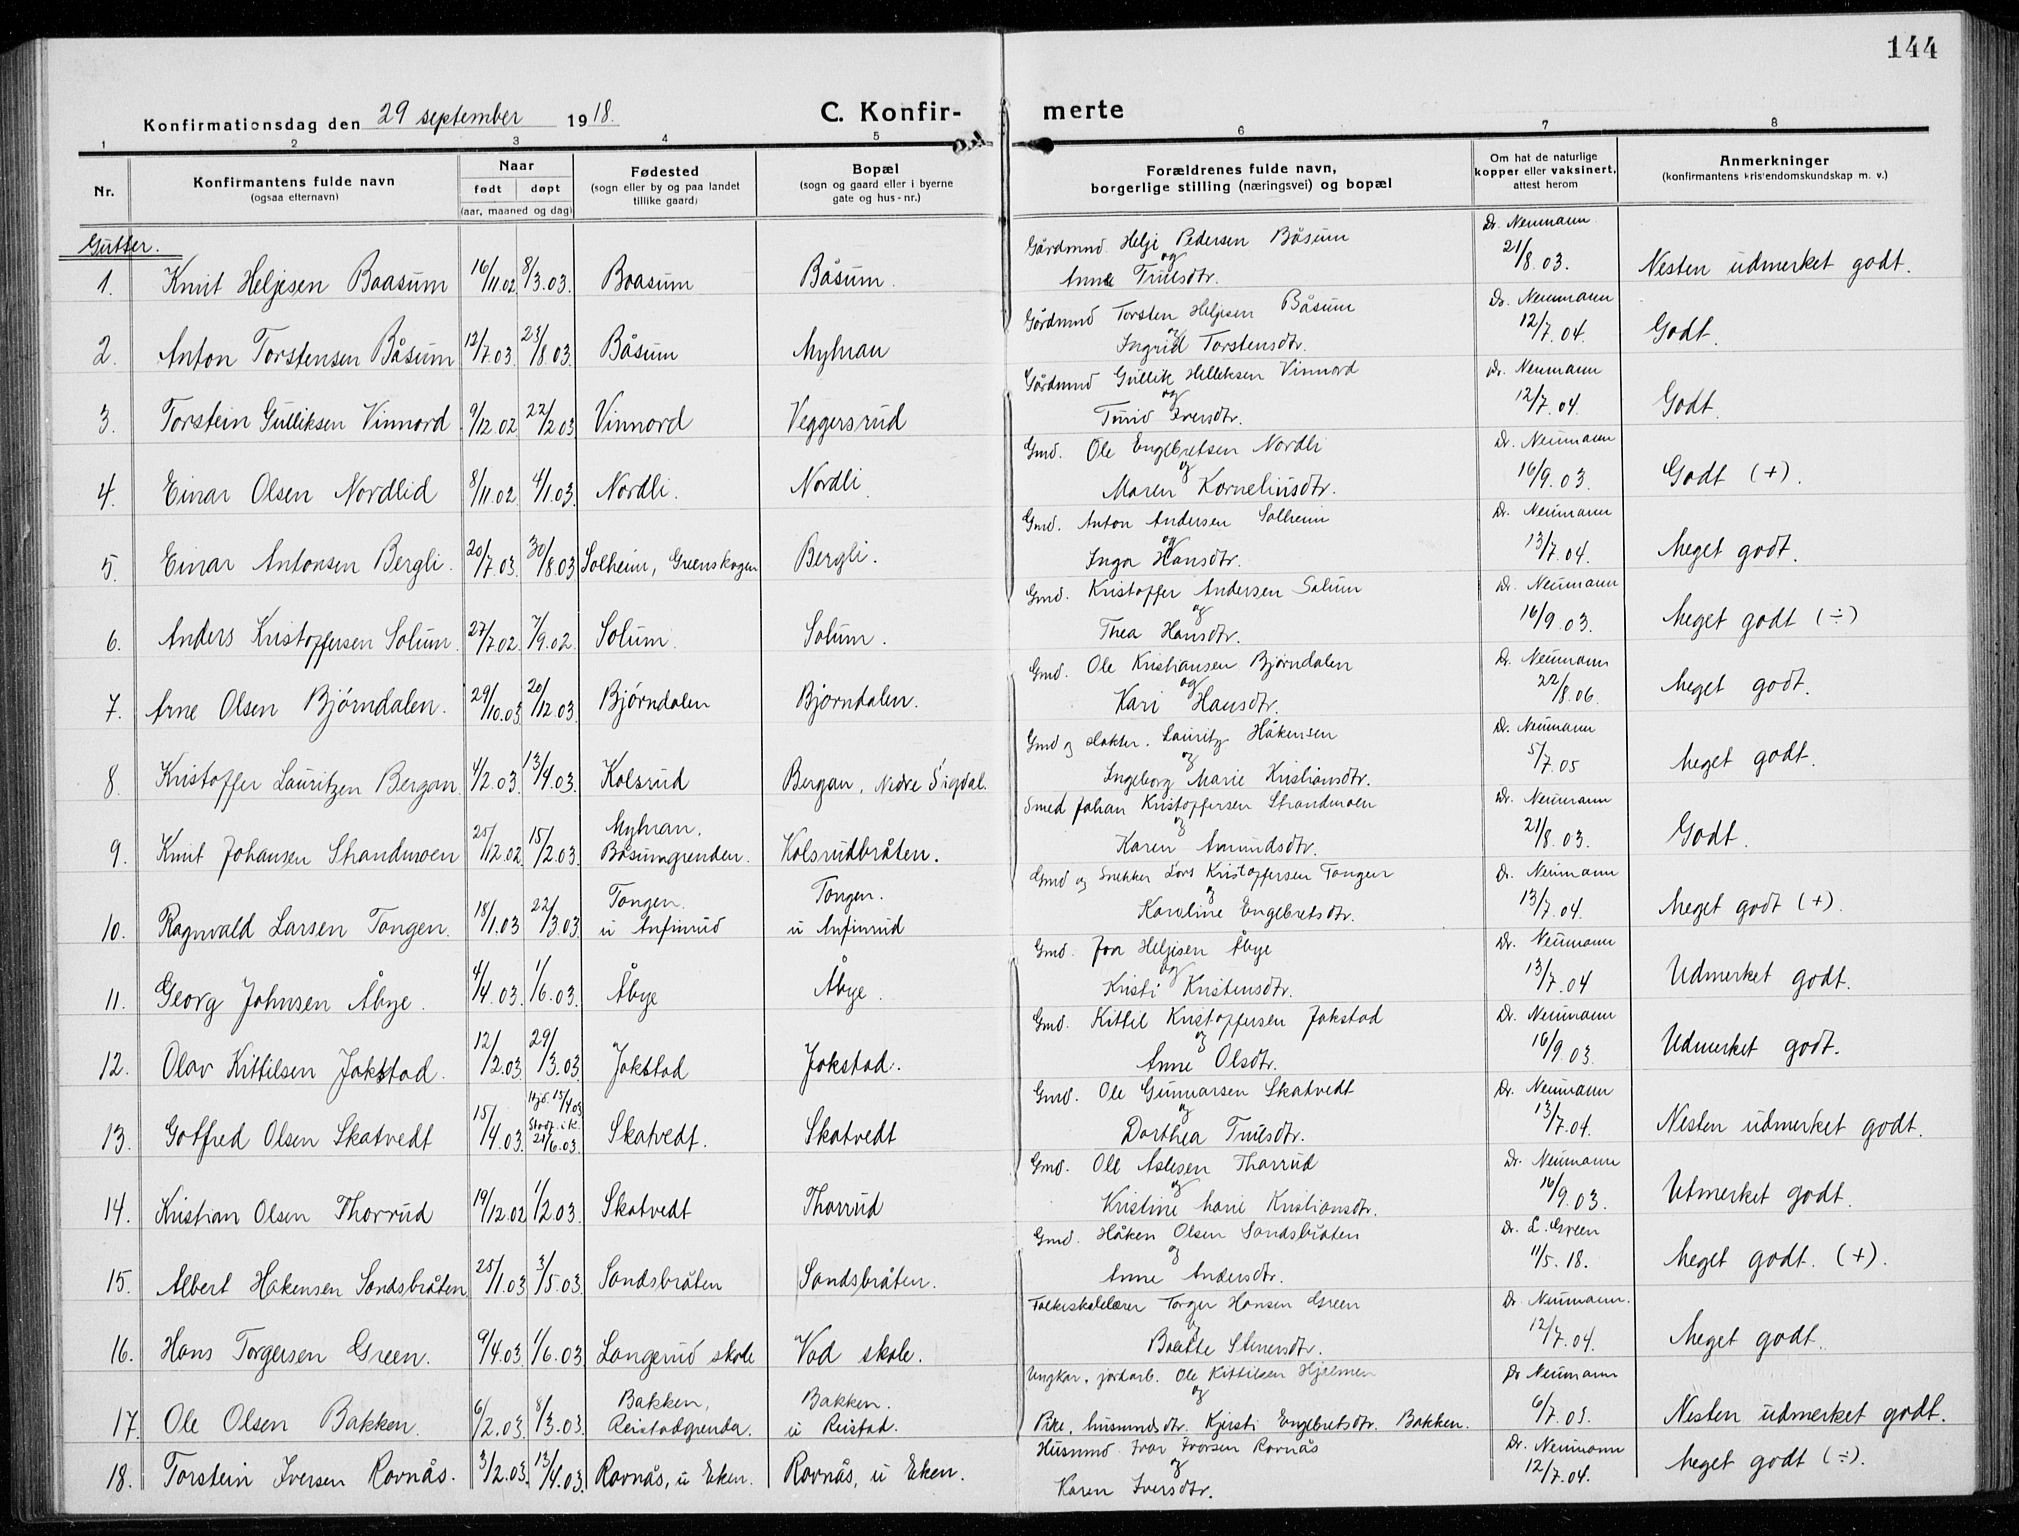 144
Konfirmationsdag den 29 september 1918.
C. Konfirmerte
1 2 3 4 5 6 7 8
Nr.
Konfirmantens fulde navn
(ogsaa efternavn)
Naar
født døpt
(aar, maaned og dag)
Fødested
(sogn eller by og paa landet
tillike gaard)
Bopæl
(sogn og gaard eller i byerne
gate og hus-nr.)
Forældrenes fulde navn,
borgerlige stilling (næringsvei) og bopæl
Om hat de naturlige
kopper eller vaksinert,
attest herom
Anmerkninger
(konfirmantens kristendomskundskap m. v.)
Gutter.
1. Knut Heljesen Baasum 16/11.02 8/3.03. Baasum Båsum. Gårdmnd. Helje Pedersen Båsum og Anne Trulsdtr. Dr. Neumann 21/8.03. Nesten udmerket godt.
2. Anton Torstensen Båsum 12/7.03. 23/8.03. Båsum Myhran Gårdmnd Torsten Heljesen Båsum og Ingrid Torstensdtr. Dr. Neumann 12/7.04. Godt.
3. Torstein Gulliksen Vinnord 9/12.02 22/2.03 Vinnord Veggersrud Gårdmnd Gullik Helleksen Vinnord og Turid Iversdtr. Dr. Neumann 12/7.04. Godt.
4. Einar Olsen Nordlid 8/11.02 4/1.03. Nordli. Nordli. Gmd. Ole Engebretsen Nordli og Maren Korneliusdtr. Dr. Neumann 16/9.03. Godt (+).
5. Einar Antonsen Bergli. 20/7.03. 30/8.03 Solheim, Greenskogen Bergli. Gmd. Anton Andersen Solheim og Inga Hansdtr. Dr. Neumann 13/7.04. Meget godt.
6. Anders Kristoffersen Solum. 27/7.02. 7/9.02. Solum. Solum. Gmd. Kristoffer Andersen Solum og Thea Hansdtr. Dr. Neumann 16/9.03. Meget godt (÷)
7. Arne Olsen Bjørndalen. 29/10.03 20/12.03. Bjørndalen Bjørndalen. Gmd. Ole Kristiansen Bjørndalen og Kari Hansdtr. Dr. Neumann 22/8.06. Meget godt.
8. Kristoffer Lauritzen Bergan. 4/2.03. 13/4.03. Kolsrud Bergan, Nedre Sigdal. Gmd og Lauritz Håkensen og Ingeborg Marie Kristiansdtr. Dr. Neumann 5/7.05 Meget godt.
9. Knut Johansen Strandmoen 25/12.02. 15/2.03. Myhran, Båsumgrenden. Kolsrudbråten. Smed Johan Kristoffersen Strandmoen og Karen Amundsdtr. Dr. Neumann 21/8.03. Godt.
10. Ragnvald Larsen Tangen. 18/1.03 22/3.03. Tangen. u Anfinrud Tangen. u Anfinrud Gmd og Snekker Lars Kristoffersen Tangen og Karoline Engebretsdtr. Dr. Neumann 13/7.04. Meget godt (+).
11. Georg Johnsen Åbye. 4/4.03. 1/6.03. Åbye Åbye. Gmd. Jon Heljesen Åbye og Kristi Kristensdtr. Dr. Neumann 13/7.04 Udmerket godt.
12. Olav Kittilsen Jokstad. 12/2.03. 29/3.03. Jokstad Jokstad. Gmd. Kittil Kristoffersen Jokstad og Anne Olsdtr. Dr. Neumann 16/9.03. Udmerket godt.
13. Gotfred Olsen Skatvedt 15/4.03. Hjd. 15/4.03 Stadf. i K. 21/6.03. Skatvedt. Skatvedt Gmd. Ole Gunnarsen Skatvedt og Dorthea Trulsdtr. Dr. Neumann 13/7.04. Nesten udmerket godt.
14. Kristian Olsen Thorrud 19/12.02 1/2.03. Skatvedt Thorrud Gmd. Ole Aslesen Thorrud og Kristine Marie Kristiansdtr. Dr. Neumann 16/9.03. Utmerket godt.
15. Albert Hakensen Sandsbråten 25/1.03 3/5.03. Sandsbråten Sandsbråten. Gmd. Håken Olsen Sandsbråten og Anne Andersdtr. Dr. L. Green 11/5.18. Meget godt. (+).
16. Hans Torgersen Green. 9/4.03. 1/6.03. Langerud skole Vad skole. Folkeskolelærer Torger Hansen Green og Beatte Stenersdtr. Dr. Neumann. 12/7.04. Meget godt.
17. Ole Olsen Bakken. 6/2.03. 8/3.03. Bakken, Reistadgrenda. Bakken. u Reistad. Ungkar, jordarb. Ole Kittilsen Hjelmen og Pike, husmndsdtr. Kjersti Engebretsdtr. Bakken. Dr Neumann 6/7.03. Nesten udmerket godt.
18. Torstein Iversen Ravnås. 3/2.03. 13/4.03. Ravnås, u Eken. Ravnås, u Eken. Husmnd Ivar Ivarsen Ravnås og Karen Iversdtr. Dr. Neumann 12/7.04. Meget godt (÷).